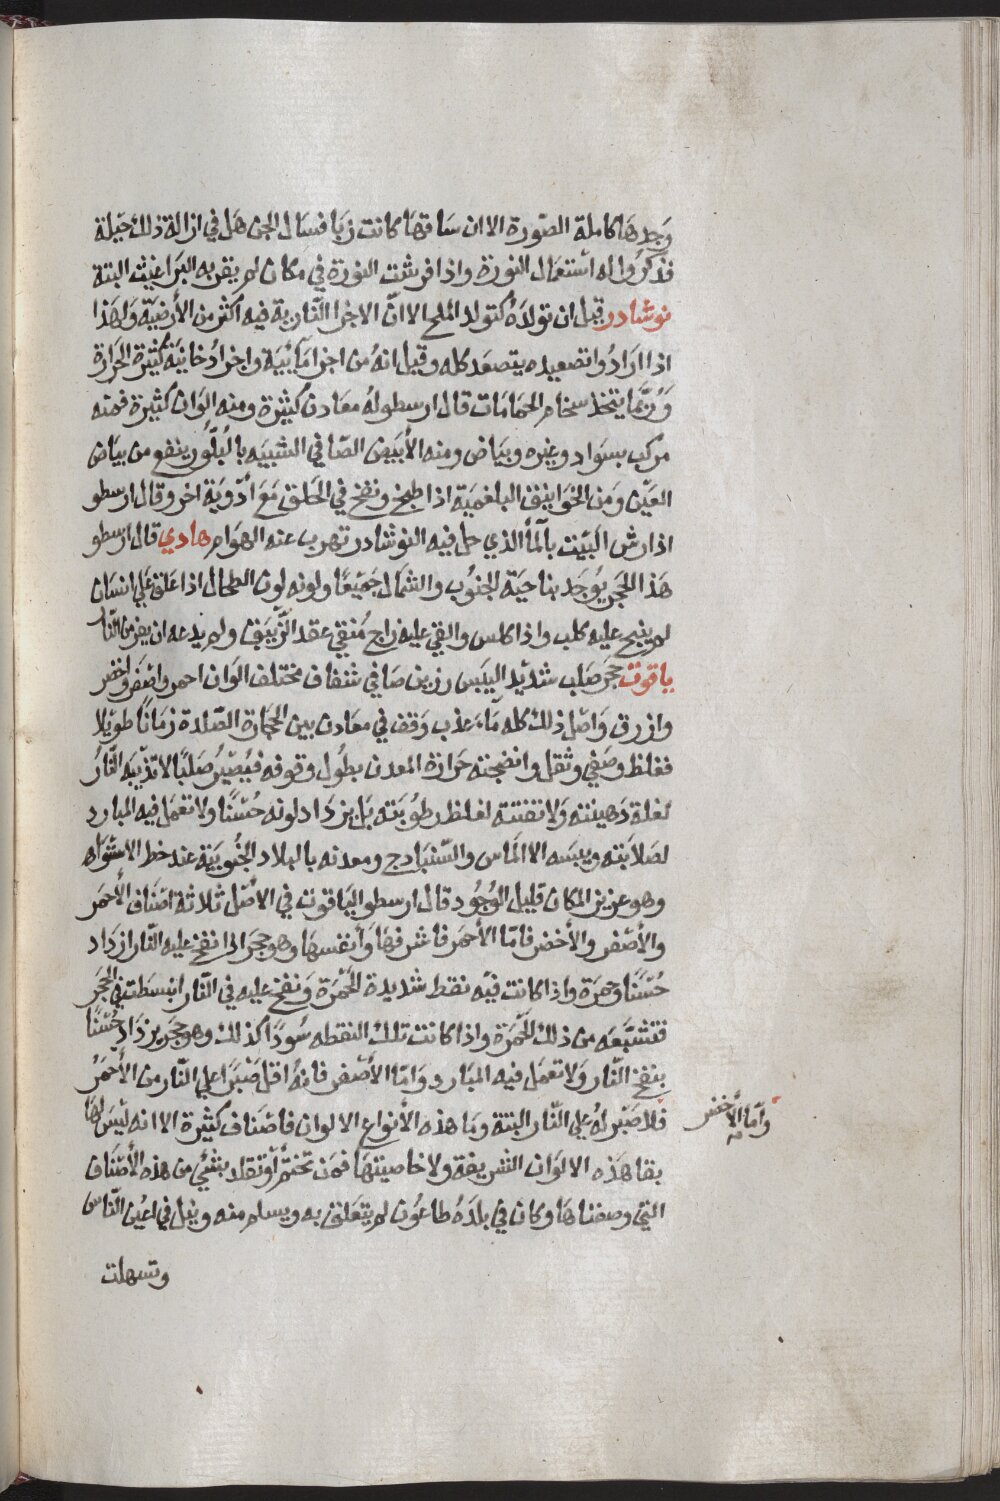 وَجدهَا كاملة الصّورة الا ان سَاقهَا كانت زبا فسَال الجن هَل في ازالة ذلك حيَلة
فذكرُوا له اسْتعمَال النورة واذا فرشت النورة في مكان لم يقربه البرَاغيث البتة
نوشادر قيل ان تولدَهُ كتولد الملح الا انّ الاجزا النّارية فيه اكثر من الأرضيّة وَلهَذا
اذا ارَادُوا تصعيده يتصعَد كله وقيل انهُ من اجزا مَائِيَة واجزا دُخانيَة كثيَرة الحرَارة
وَرُبَّمَا يتخذ سخام الحمَامَات قال ارسطو لهُ معَادن كثيَرة ومنه الوَان كثيرة فمنه
مركب بسوَاد وغبره وبيَاض ومنه الأبيَض الصّافي الشبيَه بالبُلّور ينفع من بيَاض
العَيْن وَمن الخوَانيق البلغميَة اذا طبخ ونفخ في الحَلق مَعَ أدْوية اخر وقال ارسطو
اذا رش البَيْت بالمآ الذي حل فيه النوشادر تهرب عنه الهوَام هادي قال ارسطو
هَذا الحجر يُوجَد بناحيَة الجنُوب والشمَال جَميعًا ولونه لون الطحال اذا علق عَلي انسَان
لم ينبح عليه كلب واذا كلس والقي عليه زاج مُنقي عقد الزّيبَق ولم يدعه ان يفر من النّار
ياقوت حجر صَلب شديْد اليبَس رزين صَافي شفاف مختلف الوَان احمر واصْفر واخضر
وازرق وَاصْل ذلك كله مَاء عذب وَقف في معَادن بين الحجَارة الصّلدة زمَانًا طويْلا
فغلظ وصَفي وثقل وانضجته حَرَارة المعدن بطُول وقوفه فيُصَيْرُ صَلبًا لا تذيْبَه النّارُ
لغلة دَهينته وَلا تفتته لغلظ رطُوبَته بَل يزدَاد لونه حُسْنًا ولا تعمَل فيه المبَارد
لصَلابَته ويبسَه الا المَاس والسّنبَادج ومعدنه بالبلاد الجنُوبيَة عند خط الاستواه
وهو عزيز المكان قليل الوُجُود قال ارسطو اليَاقوت في الأصْل ثلاثة اصْنَاف الأحمَر
والأصْفر والأخضر فامّا الأحمَر فاشرفهَا وَأنفسهَا وهو حجَر اذا نفخ عليه النّار ازدَاد
حُسْنًا وحمرَة واذا كانت فيْه نقط شديدة الحُمرَة وَنفخ عليه في النّار انبسَطت في الحجَر
فتشبّعَه من ذلك الحُمرَة واذا كانت تلك النقطه سُودًا كذلك وهو حجر يزدَاد حُسْنًا
بنفخ النّار وَلا تعمَل فيه المبَارد وَامّا الأصْفر فانهُ اقل صَبْرَا علي النّار من الأحمَرُ
وأمّا الأخضر
فلا صَبْر لهُ علي النّار البتة ومَا هذه الأنوَاع الالوان فاصْنَاف كثيْرة الا انه ليْسَ لهَا
بقا هَذه الالوَان الشريفة ولا خاصيتهَا فمَن تختمْ أوْ تقلد بشئي من هذه الأصْنَاف
التي وصفنا هَا وكان في بلدَهُ طاعُون لم يتعَلق به ويسلم منه وينبل في اعيُن النّاس
وتسهلت